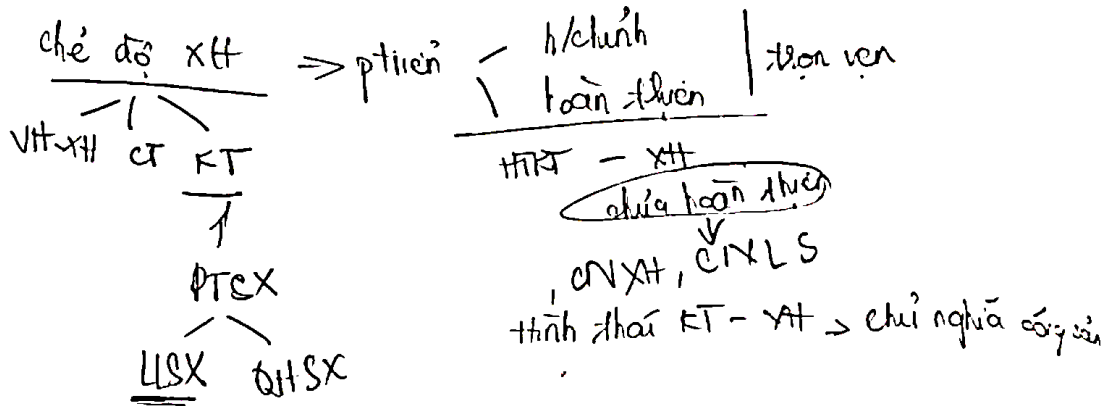 chế độ XH => ptriển h/chỉnh
hoàn thiện trọn vẹn
VH-XH CT KT
HTKT - XH
chưa hoàn thiện
PTSX
, CNXH, CNXLS
Hình thái KT - XH > chủ nghĩa cộng sản
LLSX QHSX